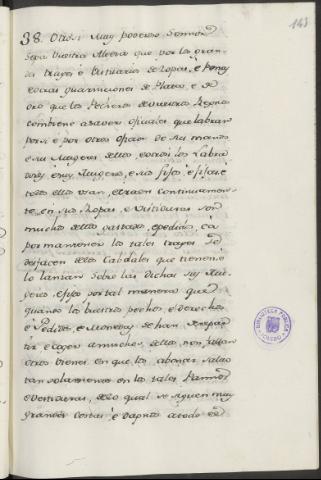 143
38. Otrosi Muy poderoso Sennor
Sepa Vuestra Alteza que por los gran-
des trages é Vestuarios de Ropas, é Penas
é otras guarniciones de Plata, e de
oro que los Pecheros de vuestros Regnos
combiene a saver oficiales que labran
por si é por otros oficios de sus manos
e sus Mugeres dellos, é otrosi los Labra-
dores é sus Mugeres, e sus fijos é fijas é
todos ellos usan, é traen continuamen-
te, en sus Ropas, e Vestiduras son
muchos dellos gastados, e pedidos, ca
por mantener los tales trages se
desfacen delos Cabdales que tienen é
lo lanzan sobre las dichas sus Mu-
geres, e fijos por tal manera que
quando los vuestros pechos, é derechos
é Pedidos, e Monedas se han de repar-
tir e coger a muchos dellos, non fallan
otros bienes en que los abonar salvo
tan solamente en los tales Pannos
é Vestiduras, delo qual se siguen muy
grandes costas, é dapnos a todo el
BIBLIOTECA PUBLICA
TOLEDO